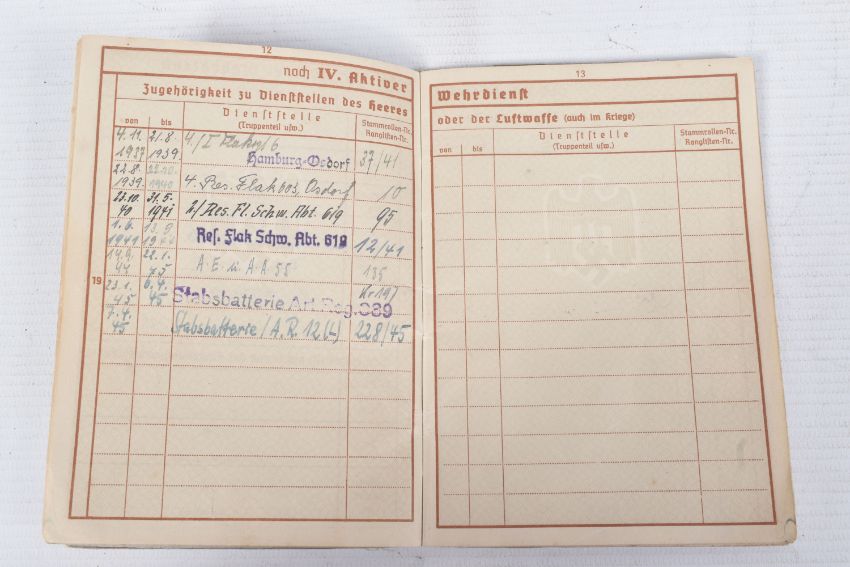 12
noch IV. Aktiver
Zugehörigkeit zu Dienststellen des Heeres
von bis Dienststelle (Truppenteil usw.) Stammrollen-Nr. Ranglisten-Nr.
4.11. 1937 21.8. 1939. 4./I. Flakrgt 6 Hamburg-Osdorf 37/41
22.8. 1939. 22.10. 1940 4. Res. Flak Osdorf 10
23.10. 40 31.5. 1941 2./Res. Fl. Schw. Abt. 619 95
1.6. 1941 13.9. 1944 Res. Flak Schw. Abt. 619 12/41
14.9. 44 22.1. A.E. u. A.A. 55 135
19 23.1. 45 6.4. 45 Stabsbatterie Art. Reg. 389
7.4. 45 Stabsbatterie/A.R. 12 (L) 228/45
13
Wehrdienst
oder der Luftwaffe (auch im Kriege)
von bis Dienststelle (Truppenteil usw.) Stammrollen-Nr. Ranglisten-Nr.